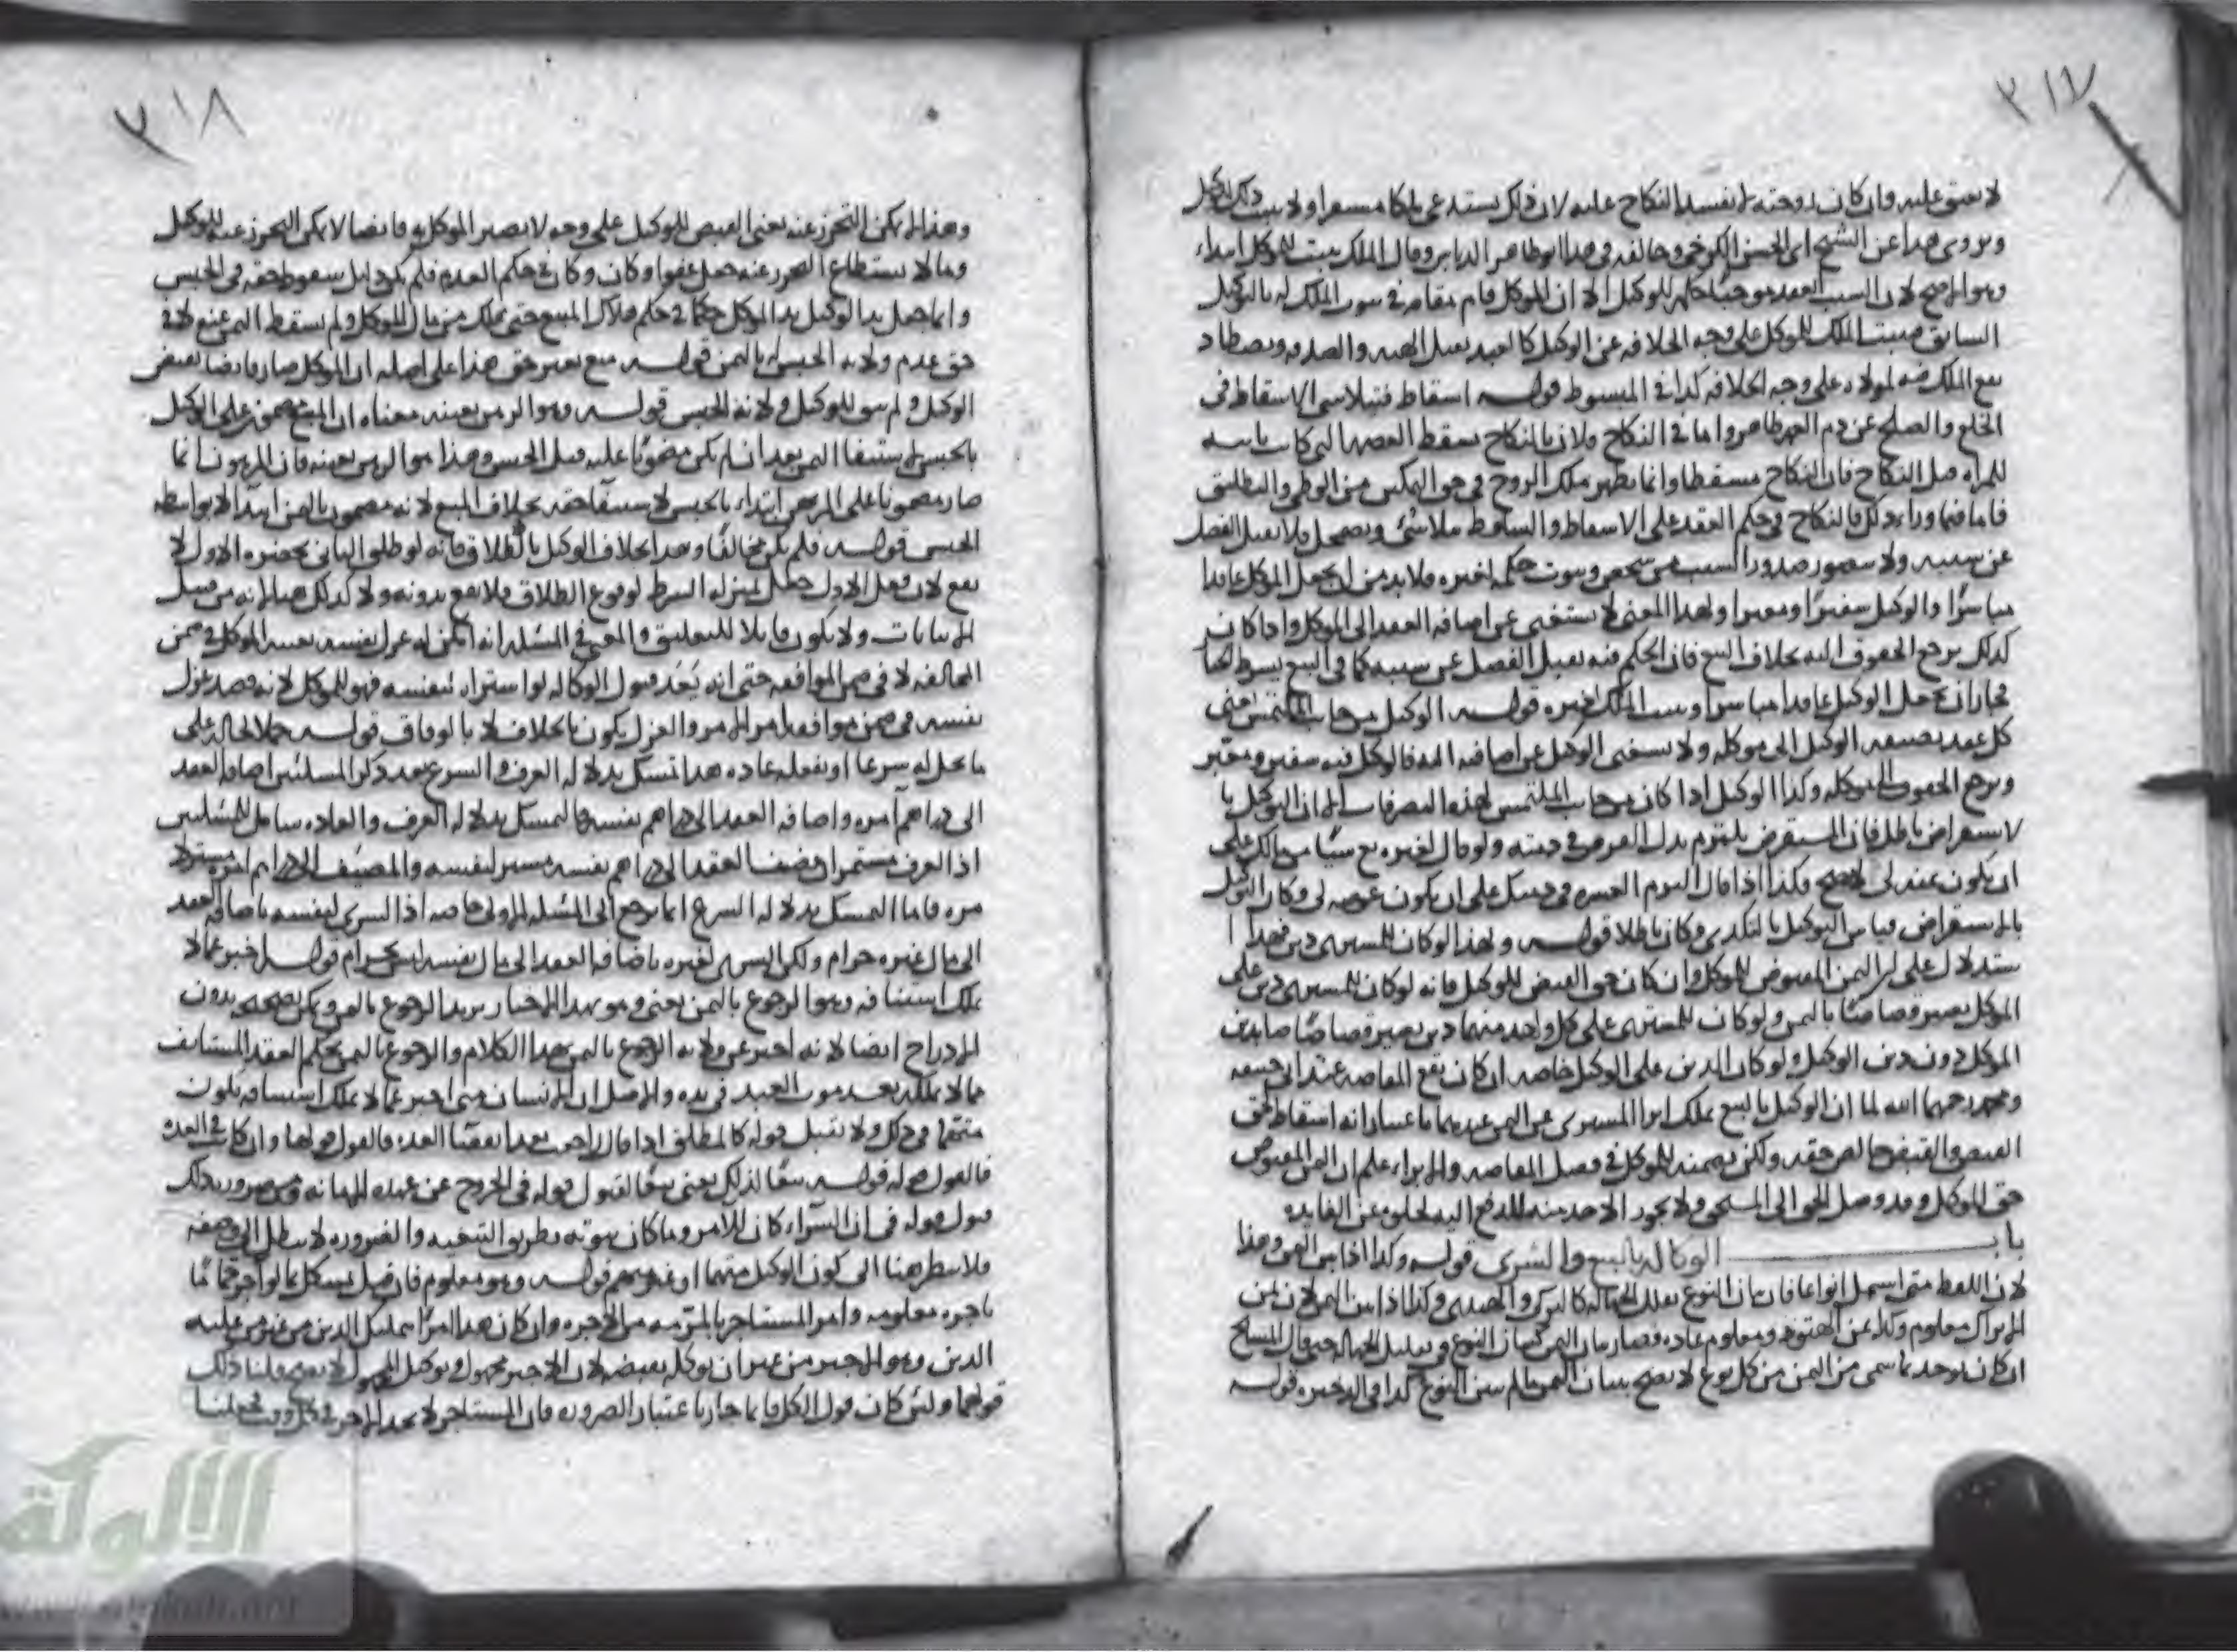 ٣١٧
لا يعتق عليه وان كان زوجته لا يفسد النكاح عليه لان ذلك يستدعي ملكا مستقرا ولا يثبت ذلك للوكيل
ويروى هذا عن الشيخ ابي الحسن الكرخي وخالفه في هذا ابو طاهر الدباس وقال الملك يثبت للموكل ابتداء
وهو الاصح لان السبب انعقد موجبا حكمه للوكيل الا ان الموكل قام مقامه في ثبوت الملك له بالتوكيل
السابق فيثبت الملك للموكل على وجه الخلافة عن الوكيل كالعبد يقبل الهبة والصدقة ويصطاد
يقع الملك فيه لمولاه على وجه الخلافة كذا في المبسوط قوله اسقاط فيتلاشى الاسقاط في
الخلع والصلح عن دم العمد ظاهر واما في النكاح فلان بالنكاح يسقط العصمة التي كانت ثابتة
للمرأة قبل النكاح فان النكاح مسقط وانما يظهر ملك الزوج في حق التمكن من الوطي والتطليق
فاما فيما وراء ذلك فالنكاح في حكم العقد على الاسقاط والساقط متلاشى ويضمحل فلا يقبل الفصل
عن سببه ولا يتصور صدور السبب من شخص وثبوت حكمه لغيره فلا بد من ان يجعل الموكل عاقدا
مباشرا والوكيل سفيرا ومعبرا ولهذا المعنى لا يستغنى عن اضافة العقد الى الموكل واذا كان
كذلك يرجع الحقوق اليه بخلاف البيع فان الحكم فيه يقبل الفصل عن سببه كما في البيع بشرط الخيار
فجاز ان يجعل الوكيل عاقدا مباشرا ويثبت الملك لغيره قوله الوكيل من جانب الملتمس يعني
كل عقد يضيفه الوكيل الى موكله ولا يستغنى الوكيل عن اضافته اليه فالوكيل فيه سفير ومعبر
ويرجع الحقوق الى موكله وكذا الوكيل اذا كان من جانب الملتمس لهذه التصرفات الا ان التوكيل با
لاستقراض باطل فان المستقرض يلتزم بدل القرض في ذمته ولو قال لغيره بع شيئا من مالك على
ان يكون ثمنه لي لا يصح وكذا اذا قال التزم العشرة في ذمتك على ان يكون عوضه لي وكان التوكيل
بالاستقراض قياس التوكيل بالتكدي وكان باطلا قوله ولهذا لو كان للمشتري دين فهذا ا
ستدلال على ان الثمن المقبوض للموكل وان كان حق القبض للوكيل فانه لو كان للمشتري دين على
الموكل يصير قصاصا بالثمن ولو كان للمشتري على كل واحد منهما دين يصير قصاصا بدين
الموكل دون دين الوكيل ولو كان الدين على الوكيل خاصة ان كان يقع المقاصة عند ابي حنيفة
ومحمد رحمهما الله لما ان الوكيل بالبيع يملك ابرا المشتري عن الثمن عندهما باعتبار انه اسقاط لحق
القبض والقبض خالص حقه ولكن يضمنه للموكل في فصل المقاصة والابراء علم ان الثمن المقبوض
حق الموكل وقد وصل الحق الى المستحق ولا يجوز الاخذ منه للدفع اليه لخلوه عن الفايدة
باب الوكالة بالبيع والشرى قوله وكذا اذا سمى الثمن وهذا
لان اللفظ متى اشتمل انواعا فان بيان النوع يقلل الجهالة كالتركي والهندي وكذا اذا بين الثمن لان ثمن
الاتراك معلوم وكذا ثمن الهنود معلوم عادة فصار بيان الثمن كبيان النوع في تقليل الجهالة حتى قال المشايخ
ان كان يوجد بما سمى من الثمن من كل نوع لا يصح ببيان الثمن ما لم يبين النوع كذا في الذخيرة قوله
٣١٨
وهذا لا يمكن التحرز عنه يعني القبض للوكيل على وجه لا يصير الموكل به قابضا لا يمكن التحرز عنه للوكيل
وما لا يستطاع التحرز عنه جعل عفوا وكان في حكم العدم فلم يكن دليل سقوط حقه في الحبس
وانما جعل يد الوكيل يد الموكل حكما في حكم هلاك المبيع حتى هلك من مال الموكل ولم يسقط الثمن عنه لا في
حق عدم ولاية الحبس بالثمن قوله منع بغير حق هذا على اصله ان الموكل صار قابضا بقبض
الوكيل ولم يبق للوكيل ولاية الحبس قوله وهو الرهن بعينه معناه ان المبيع مضمون على الوكيل
بالحبس لاستيفا الثمن بعد ان لم يكن مضمونا عليه قبل الحبس وهذا هو الرهن بعينه فان المرهون انما
صار مضمونا على المرتهن ابتداء بالحبس لاستيفا حقه بخلاف المبيع لانه مضمون بالثمن ابتدا لا بواسطة
الحبس قوله فلم يكن مخالفا وهذا بخلاف الوكيل بالطلاق فانه لو طلق الثاني بحضرة الاول لا
يقع لان فعل الاول جعل بمنزلة الشرط لوقوع الطلاق فلا يقع بدونه ولا كذلك هنا لانه من قبيل
الاثباتات ولا يكون قابلا للتعليق والمعنى في المسئلة انه يمكن له عزل نفسه بغيبة الموكل في ضمن
المخالفة لا في ضمن الموافقة حتى انه بعد قبول الوكالة لو اشتراه لنفسه فهو للموكل لانه قصد عزل
نفسه في ضمن موافقة امر الامر والعزل يكون بالخلاف لا بالوفاق قوله حملا لحاله على
ما يحل له شرعا او يفعله عادة هذا تمسك بدلالة العرف والشرع بعد ذكر المسئلتين اضافة العقد
الى دراهم آمره واضافة العقد الى دراهم نفسه فالتمسك بدلالة العرف والعادة شامل للمسئلتين
اذ العرف مستمر ان مضيف العقد الى دراهم نفسه مشتر لنفسه والمضيف الى دراهم امره مشتر لا
مره فاما التمسك بدلالة الشرع انما يرجع الى المسئلة الاولى خاصة اذ الشرى لنفسه باضافة العقد
الى مال غيره حرام ولكن الشرى لغيره باضافة العقد الى مال نفسه ليس بحرام قوله اخبر عما لا
يملك استينافه وهو الرجوع بالثمن يعني وهو بهذا الاخبار يريد الرجوع بالثمن ولكن تصحيحه بدون
الادراج ايضا لانه اخبر عن ولاية الرجوع بالثمن بهذا الكلام والرجوع بالثمن بحكم العقد المستانف
مما لا يملكه بعد موت العبد في يده والاصل ان الانسان متى اخبر عما لا يملك استينافه يكون
متهما في ذلك ولا يقبل قوله كالمطلق اذا قال راجعت بعد انقضا العدة فالقول قولها وان كانت في العدة
فالقول قوله قوله تبعا لذلك يعني تبعا لقبول قوله في الخروج عن عهدة الامانة ومن ضرورة ذلك
قبول قوله في ان الشراء كان للآمر وما كان ثبوته بطريق التبعية والضرورة لا يبطل الى وصفه
فلا ينظر هنا الى كون الوكيل متهما او غير متهم قوله وهو معلوم فان قيل يشكل بما لو آجر حماما
باجرة معلومة وامر المستاجر بالمرمة من الاجرة وان كان هذا امرا بتمليك الدين من غير من عليه
الدين وهو الاجير من غير ان يوكله بقبضه لان الاجير مجهول وتوكيل المجهول لا يصح قلنا ذلك
قولهما ولئن كان قول الكل فانما جاز باعتبار الضرورة فان المستاجر لا يجد الاجر في كل وقت فجعلنا
الألوكة